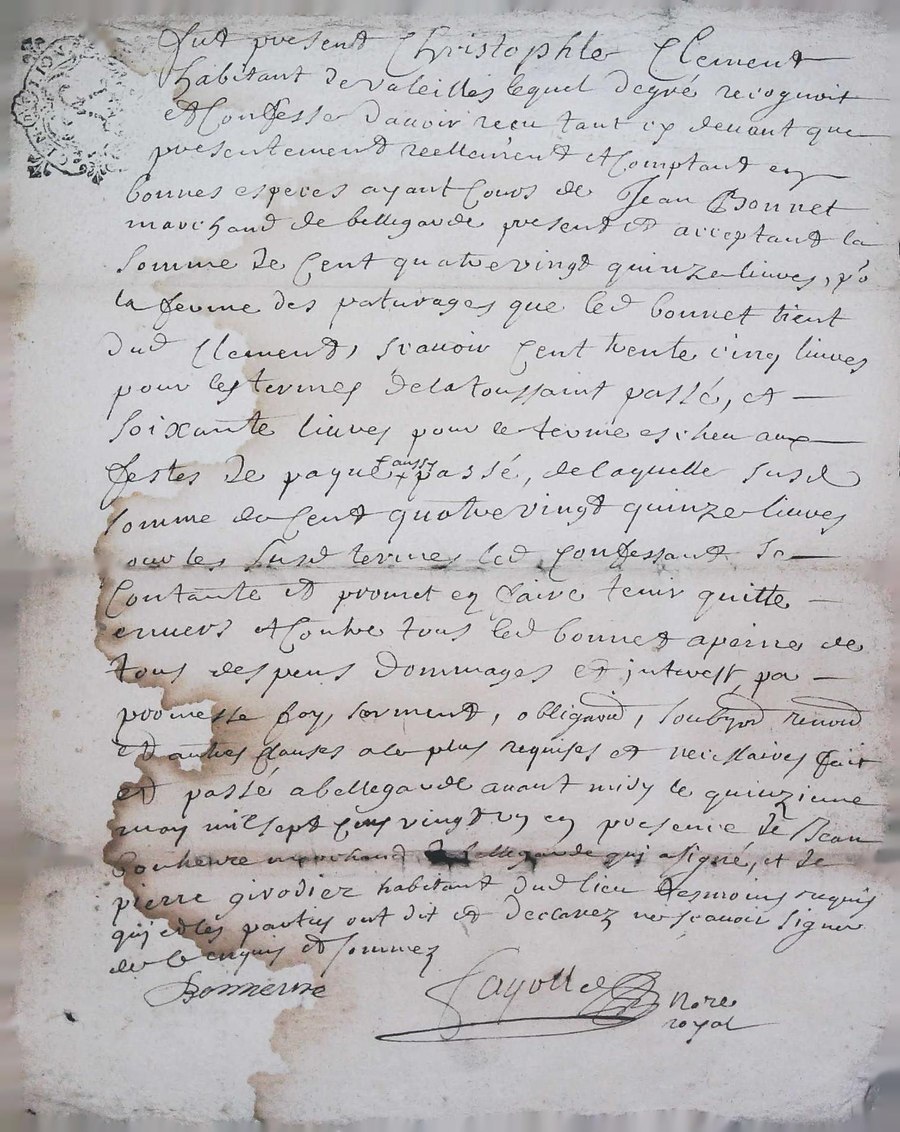 GN DE LION
fut present Christophle Clement
habitant de valeilles lequel de gré recognoit
et Confesse d'auoir receu tant cy deuant que
presentement reellement et Comptant en
bonnes especes ayant Cours de Jean Bonnet
marchand de bellegarde present et acceptant la
somme de Cent quatre vingt quinze liures, po
la ferme des paturages que led bonnet tient
dud Clement, scauoir Cent trente cinq liures
pour les termes de la toussaint passé, et
soixante liures pour le terme escheu aux
festes de paque aussy passé, de laquelle susd
somme de Cent quatre vingt quinze liures
our les susd termes led Confessant se
Contante et promet en faire tenir quitte
enuers et Contre tous led bonnet a peine de
tous despens dommages et interest, par
promesse foy, serment, obligaod, soubzod renond
et autres clauses a le plus requises et necessaires fait
et passé a bellegarde auant midy le quinzieme
may mil sept cens vingt un en presence de Sr Jean
bonheure marchand de bellegarde qui a signé, et de
pierre girodier habitant dud lieu tesmoins requis
qui et les parties ont dit et declarez ne scauoir signer
de ce enquis et sommez
Bonneure
Fayolle
nore
royal